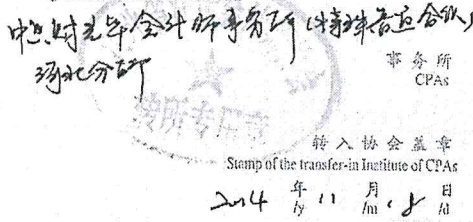 中兴财光华会计师事务所(特殊普通合伙)
河北分所
事务所
CPAs
转所专用章
转入协会盖章
Stamp of the transfer-in Institute of CPAs
2014 年 11 月 18 日
/y /m /d